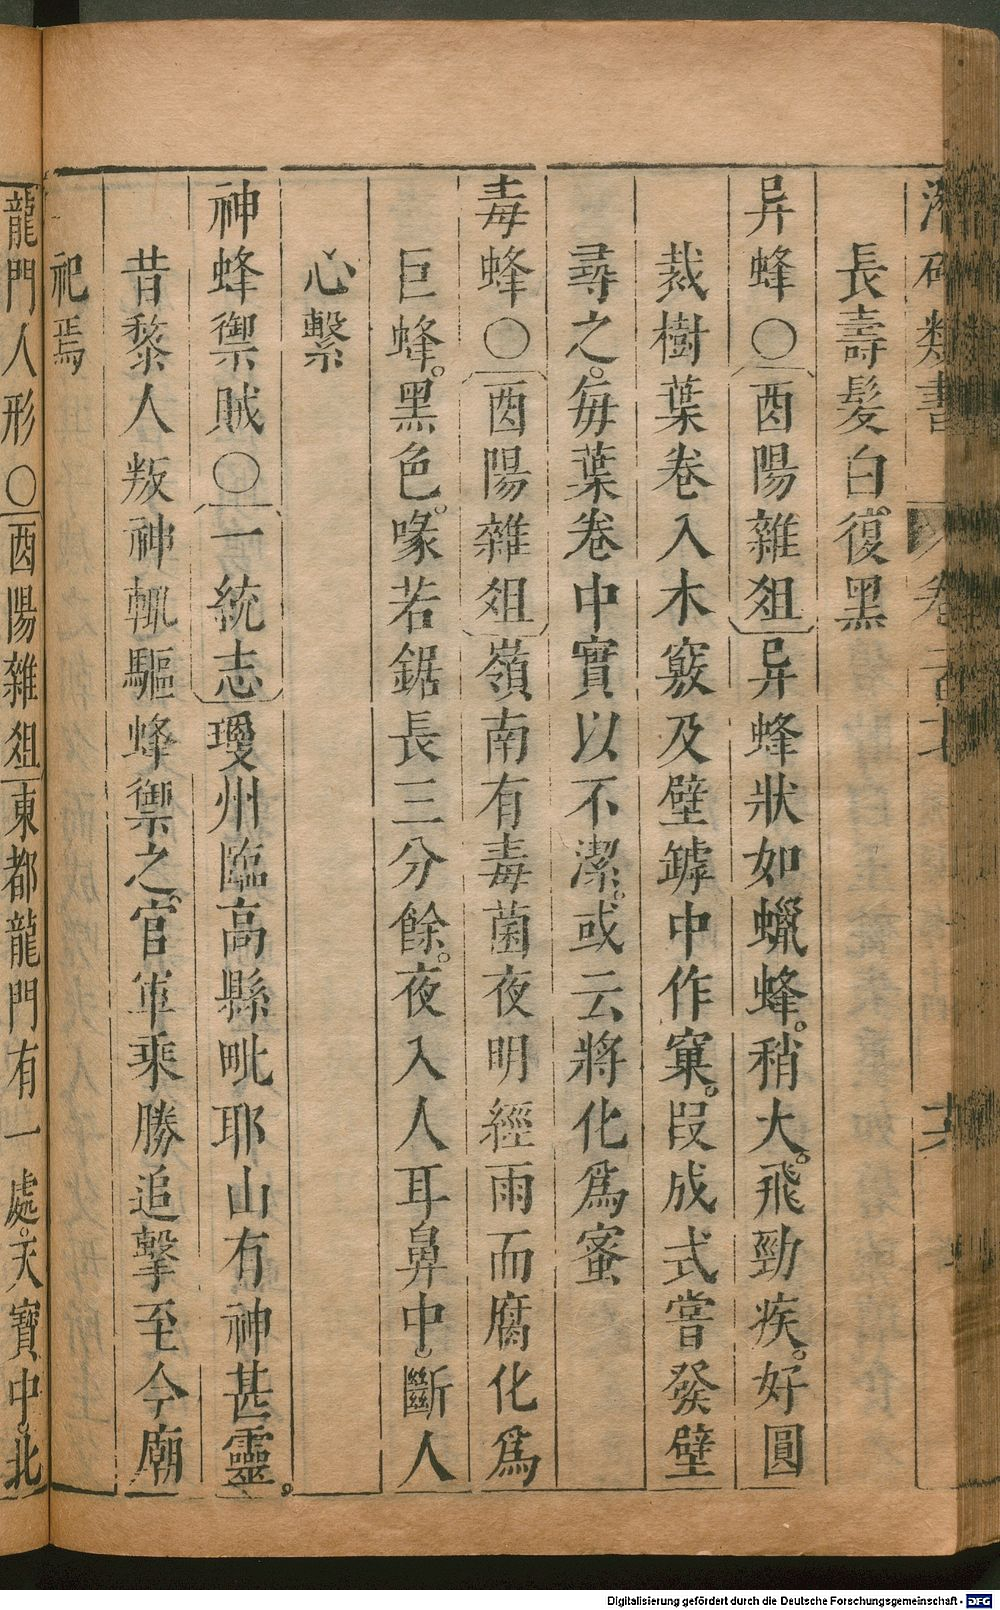 類書
長壽髮白復黑
异蜂〇酉陽雜俎异蜂狀如蠟蜂。稍大。飛勁疾。好圓
裁樹葉卷入木竅及壁罅中作窠。段成式嘗發壁
尋之。每葉卷中實以不潔。或云將化爲蜜
毒蜂〇酉陽雜俎嶺南有毒菌夜明經雨而腐化爲
巨蜂。黑色。喙若鋸長三分餘。夜入人耳鼻中。斷人
心繫
神蜂禦賊〇一統志瓊州臨高縣毗耶山有神甚靈。
昔黎人叛神輒驅蜂禦之。官軍乘勝追擊至今廟
祀焉
龍門人形〇酉陽雜俎東都龍門有一處。天寶中。北
Digitalisierung gefördert durch die Deutsche Forschungsgemeinschaft - DFG